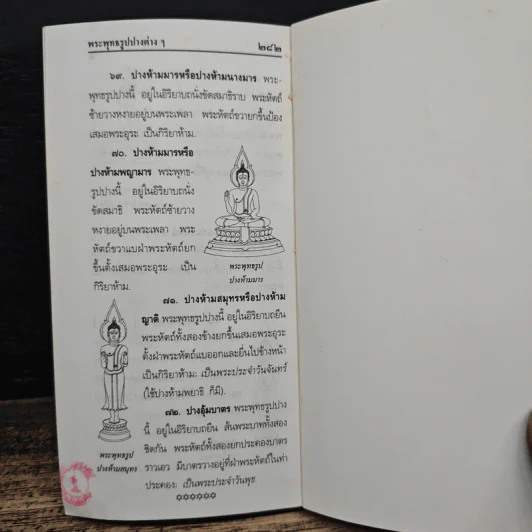 พระพุทธรูปปางต่าง ๆ ๒๘๒
๖๙. ปางห้ามมารหรือปางห้ามนางมาร พระ-
พุทธรูปปางนี้ อยู่ในอิริยาบถนั่งขัดสมาธิราบ พระหัตถ์
ซ้ายวางหงายอยู่บนพระเพลา พระหัตถ์ขวายกขึ้นป้อง
เสมอพระอุระ เป็นกิริยาห้าม.
๗๐. ปางห้ามมารหรือ
ปางห้ามพญามาร พระพุทธ-
รูปปางนี้ อยู่ในอิริยาบถนั่ง
ขัดสมาธิ พระหัตถ์ซ้ายวาง
หงายอยู่บนพระเพลา พระ
หัตถ์ขวาแบฝ่าพระหัตถ์ยก
ขึ้นตั้งเสมอพระอุระ เป็น
กิริยาห้าม.
พระพุทธรูป
ปางห้ามมาร
๗๑. ปางห้ามสมุทรหรือปางห้าม
ญาติ พระพุทธรูปปางนี้ อยู่ในอิริยาบถยืน
พระหัตถ์ทั้งสองข้างยกขึ้นเสมอพระอุระ
ตั้งฝ่าพระหัตถ์แบออกและยื่นไปข้างหน้า
เป็นกิริยาห้าม: เป็นพระประจำวันจันทร์
(ใช้ปางห้ามพยาธิ ก็มี).
พระพุทธรูป
ปางห้ามสมุทร
๗๒. ปางอุ้มบาตร พระพุทธรูปปาง
นี้ อยู่ในอิริยาบถยืน ส้นพระบาททั้งสอง
ชิดกัน พระหัตถ์ทั้งสองยกประคองบาตร
ราวเอว มีบาตรวางอยู่ที่ฝ่าพระหัตถ์ในท่า
ประคอง: เป็นพระประจำวันพุธ